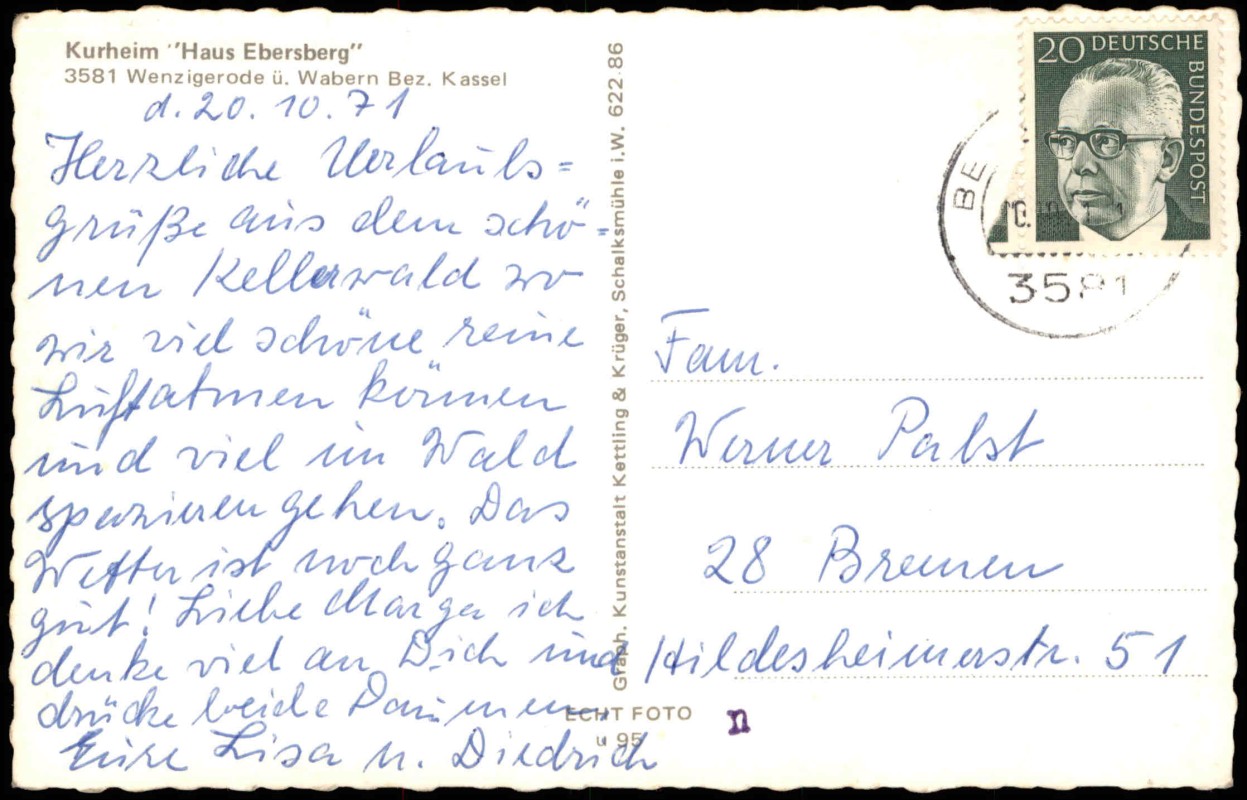 Kurheim "Haus Ebersberg"
3581 Wenzigerode ü. Wabern Bez. Kassel
d. 20. 10. 71
Herzliche Urlaubs=
grüße aus dem schö=
nen Kellerwald wo
wir viel schöne reine
Luft atmen können
und viel im Wald
spazieren gehen. Das
Wetter ist noch ganz
gut! Liebe Marga ich
denke viel an Dich und
drücke beide Daumen
Eure Lisa u. Diedrich
Graph. Kunstanstalt Kettling & Krüger, Schalksmühle i.W. 622.86
ECHT FOTO
u 95
n
20 DEUTSCHE
BUNDESPOST
BE
3581
Fam.
Werner Pabst
28 Bremen
Hildesheimerstr. 51